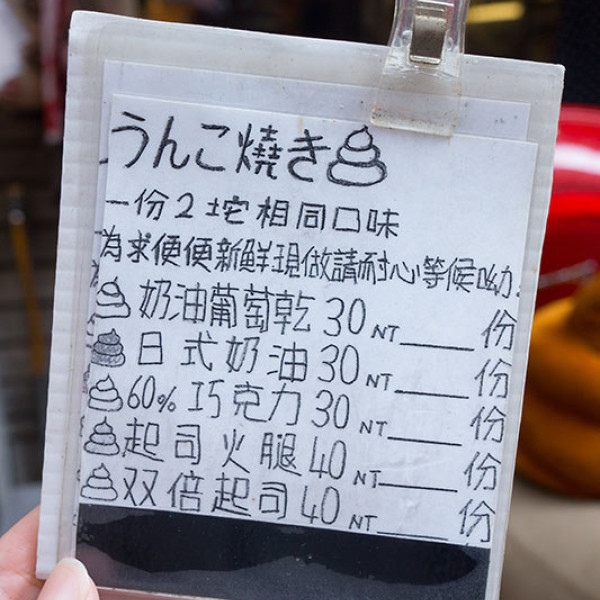 うんこ燒き
一份2坨相同口味
為求便便新鮮現做請耐心等候呦.
奶油葡萄乾30NT_____份
日式奶油30NT_____份
60%巧克力30NT_____份
起司火腿40NT_____份
双倍起司40NT_____份